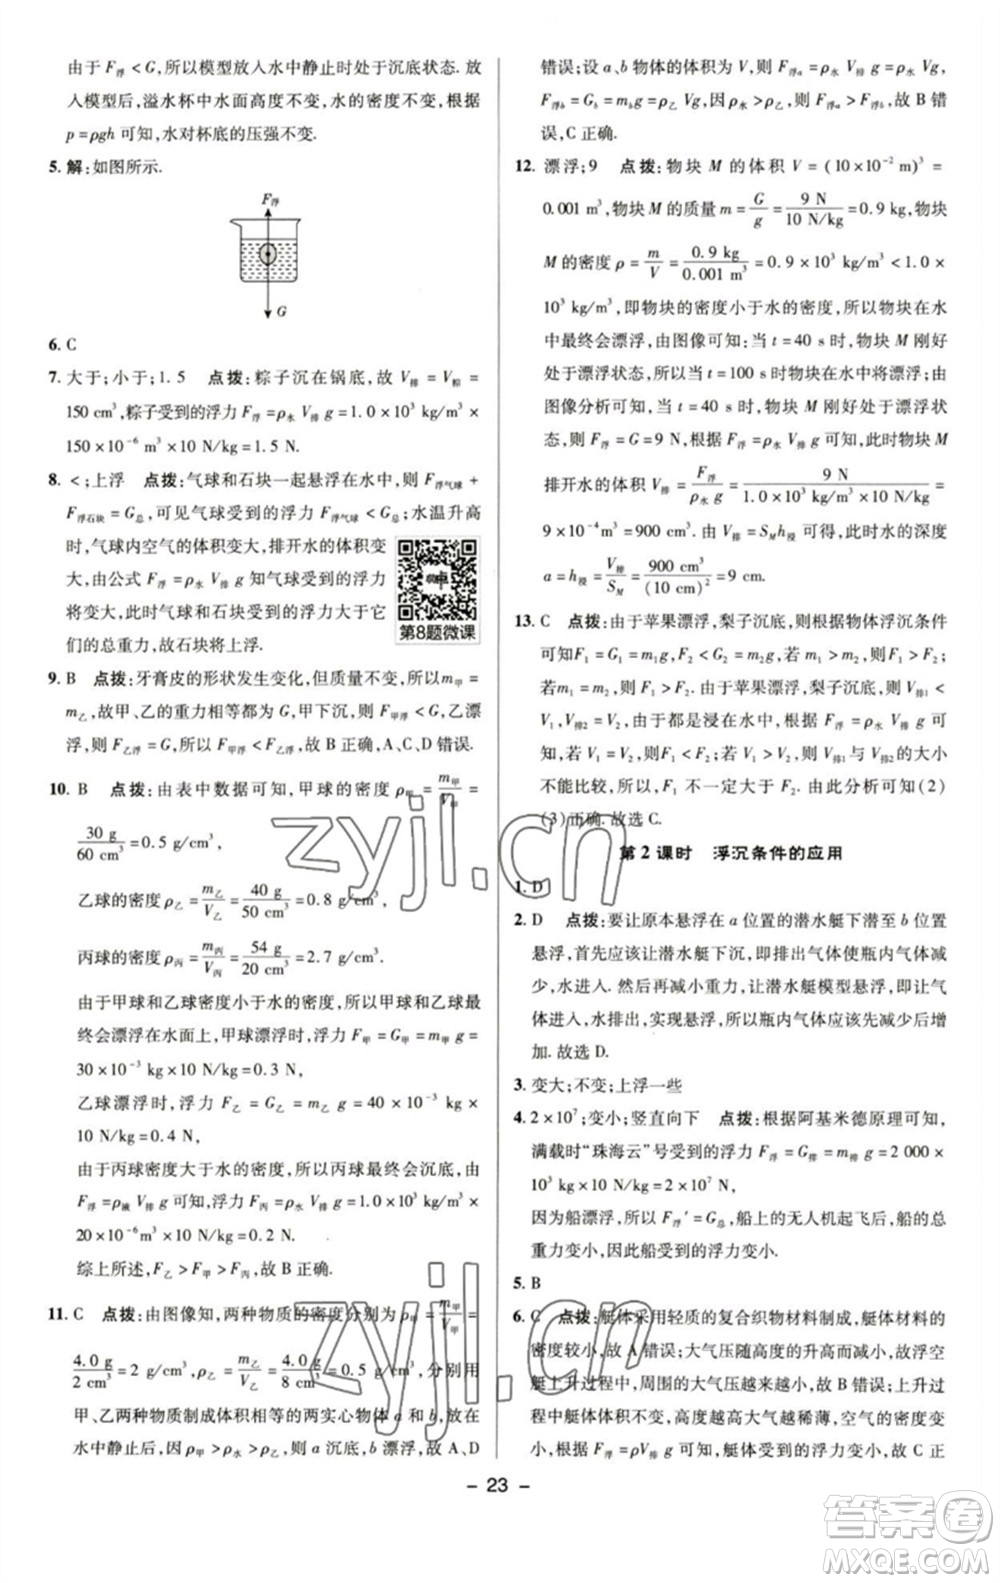 由于 F浮 < G, 所以模型放入水中静止时处于沉底状态. 放
入模型后, 溢水杯中水面高度不变, 水的密度不变, 根据
p = ρgh 可知, 水对杯底的压强不变.
5. 解: 如图所示.
F浮
G
6. C
7. 大于; 小于; 1. 5 点拨: 粽子沉在锅底, 故 V排 = V粽 =
150 cm³, 粽子受到的浮力 F浮 = ρ水 V排 g = 1. 0 × 10³ ×
150 × 10⁻⁶ m³ × 10 N/kg = 1. 5 N.
8. <; 上浮 点拨: 气球和石块一起悬浮在水中, F浮气球 +
F浮石块 = G总, 可见气球受到的浮力 F浮气球 < G总; 水温升高
时, 气球内空气的体积变大, 排开水的体积变大,
由公式 F浮 = ρ水 V排 g 知气球受到的浮力
将变大, 此时气球和石块受到的浮力大于它们
的总重力, 故石块将上浮.
第8题微课
9. B 点拨: 牙膏皮的形状发生变化, 但质量不变, 所以 m甲 =
m乙, 故甲、乙的重力相等都为 G, 甲下沉, F甲浮 < G, 乙漂
浮, F乙浮 = G, 所以 F甲浮 < F乙浮, 故 B 正确, A、C、D 错误.
10. B 点拨: 由表中数据可知, 甲球的密度 ρ甲 = m甲/V甲 =
30 g/60 cm³ = 0. 5 g/cm³,
乙球的密度 ρ乙 = m乙/V乙 = 40 g/50 cm³ = 0. 8 g/cm³,
丙球的密度 ρ丙 = m丙/V丙 = 54 g/20 cm³ = 2. 7 g/cm³.
由于甲球和乙球密度小于水的密度, 所以甲球和乙球最
终会漂浮在水面上, 甲球漂浮时, F甲 = G甲 = m甲 g =
30 × 10⁻³ kg × 10 N/kg = 0. 3 N,
乙球漂浮时, 浮力 F乙 = G乙 = m乙 g = 40 × 10⁻³ kg ×
10 N/kg = 0. 4 N,
由于丙球密度大于水的密度, 所以丙球最终会沉底, 由
F浮 = ρ液 V排 g 可得, 浮力 F丙 = ρ水 V丙 g = 1. 0 × 10³ kg/m³ ×
20 × 10⁻⁶ m³ × 10 N/kg = 0. 2 N.
综上所述, F乙 > F甲 > F丙, 故 B 正确.
11. C 点拨: 由图像知, 两种物质的密度分别为 ρ甲 = m甲/V甲 =
4. 0 g/2 cm³ = 2 g/cm³, ρ乙 = m乙/V乙 = 4. 0 g/8 cm³ = 0. 5 g/cm³, 分别用
甲、乙两种物质制成体积相等的两实心物体 a 和 b, 放在
水中静止后, 因 ρ甲 > ρ水 > ρ乙, 则 a 沉底, b 漂浮, 故 A、D
错误; 设 a、b 物体的体积为 V, 则 F浮a = ρ水 V排 g = ρ水 Vg,
F浮b = Gb = mb g = ρ乙 Vg, 因 ρ水 > ρ乙, 故 F浮a > F浮b, 故 B 错
误, C 正确.
12. 漂浮; 9 点拨: 物块 M 的体积 V = (10 × 10⁻² m)³ =
0. 001 m³, 物块 M 的质量 m = G/g = 9 N/10 N/kg = 0. 9 kg, 物块
M 的密度 ρ = m/V = 0. 9 kg/0. 001 m³ = 0. 9 × 10³ kg/m³ < 1. 0 ×
10³ kg/m³, 即物块的密度小于水的密度, 所以物块在水
中最终会漂浮, 由图像可知: 当 t = 40 s 时物块 M 刚好
处于漂浮状态, 所以当 t = 100 s 时物块在水中漂浮; 由
图像分析可知, t = 40 s 时, 物块 M 刚好处于漂浮状
态, F浮 = G = 9 N, 根据 F浮 = ρ水 V排 g 可知, 此时物块 M
排开水的体积 V排 = F浮/ρ水 g = 9 N/1. 0 × 10³ kg/m³ × 10 N/kg =
9 × 10⁻⁴ m³ = 900 cm³. 由 V排 = SM h浸 可得, 此时水的深度
a = h浸 = V排/SM = 900 cm³/(10 cm)² = 9 cm.
13. C 点拨: 由于苹果漂浮, 梨子沉底, 则根据物体浮沉条件
可知 F₁ = G₁ = m₁g, F₂ < G₂ = m₂g, 若 m₁ > m₂, 则 F₁ > F₂;
若 m₁ = m₂, 则 F₁ > F₂. 由于苹果漂浮, 梨子沉底, 则 V排1 <
V₁, V排2 = V₂, 由于都是浸在水中, 根据 F浮 = ρ水 V排 g 可
知, 若 V₁ = V₂, 则 F₁ < F₂; 若 V₁ > V₂, 则 V排1 与 V排2 的大小
不能比较, 所以 F₁ 不一定大于 F₂. 由此分析可知 (2)
(3) 正确. 故选 C.
第 2 课时 浮沉条件的应用
1. D
2. D 点拨: 要让原本悬浮在 a 位置的潜水艇下潜至 b 位置
悬浮, 首先应该让潜水艇下沉, 即排出气体使瓶内液体
进入. 然后再减小重力, 让潜水艇模型悬浮, 应该让气
体进入, 水排出, 实现悬浮, 所以瓶内气体应该先减少后增
加. 故选 D.
3. 变大; 不变; 上浮一些
4. 2 × 10⁷; 变小; 竖直向下 点拨: 根据阿基米德原理可知,
满载时“珠海云”号受到的浮力 F浮 = G排 = m排 g = 2 000 ×
10³ kg × 10 N/kg = 2 × 10⁷ N,
因为船漂浮, 所以 F浮′ = G总, 船上的无人机起飞后, 船的总
重力变小, 因此船受到的浮力变小.
5. B
6. C 点拨: 艇体采用轻质的复合织物材料制成, 艇体材料的
密度较小, 故 A 错误; 大气压随高度的升高而减小, 浮空
艇上升过程中, 周围的大气压越来越小, 故 B 错误; 上升过
程中艇体体积不变, 高度越高大气越稀薄, 空气的密度变
小, 根据 F浮 = ρV排 g 可知, 艇体受到的浮力变小, 故 C 正
- 23 -
zyjl.cn
zyjl.cn
答案圈
MXQE.COM